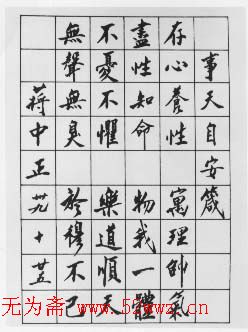 事天自安箴
存心養性 寓理帥氣
盡性知命 物我一體
不憂不懼 樂道順天
無聲無臭 於穆不已
蔣中正 卅九 十 廿五
无为斋 www.52wwz.cn